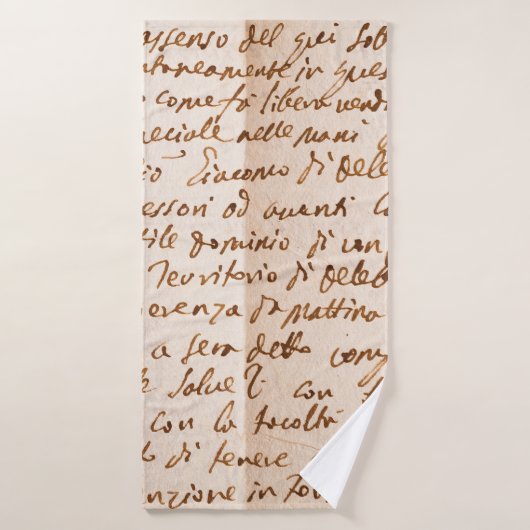 assenso del qui sott
ntaneamente in ques
come fà libera vendi
peciale nelle mani
Giacomo di Dele
essori ed quanti
tile dominio di un
Territorio di Deleb
erenza da mattina
a sera detto
salve con
con la facoltà
di tenere
nzione in